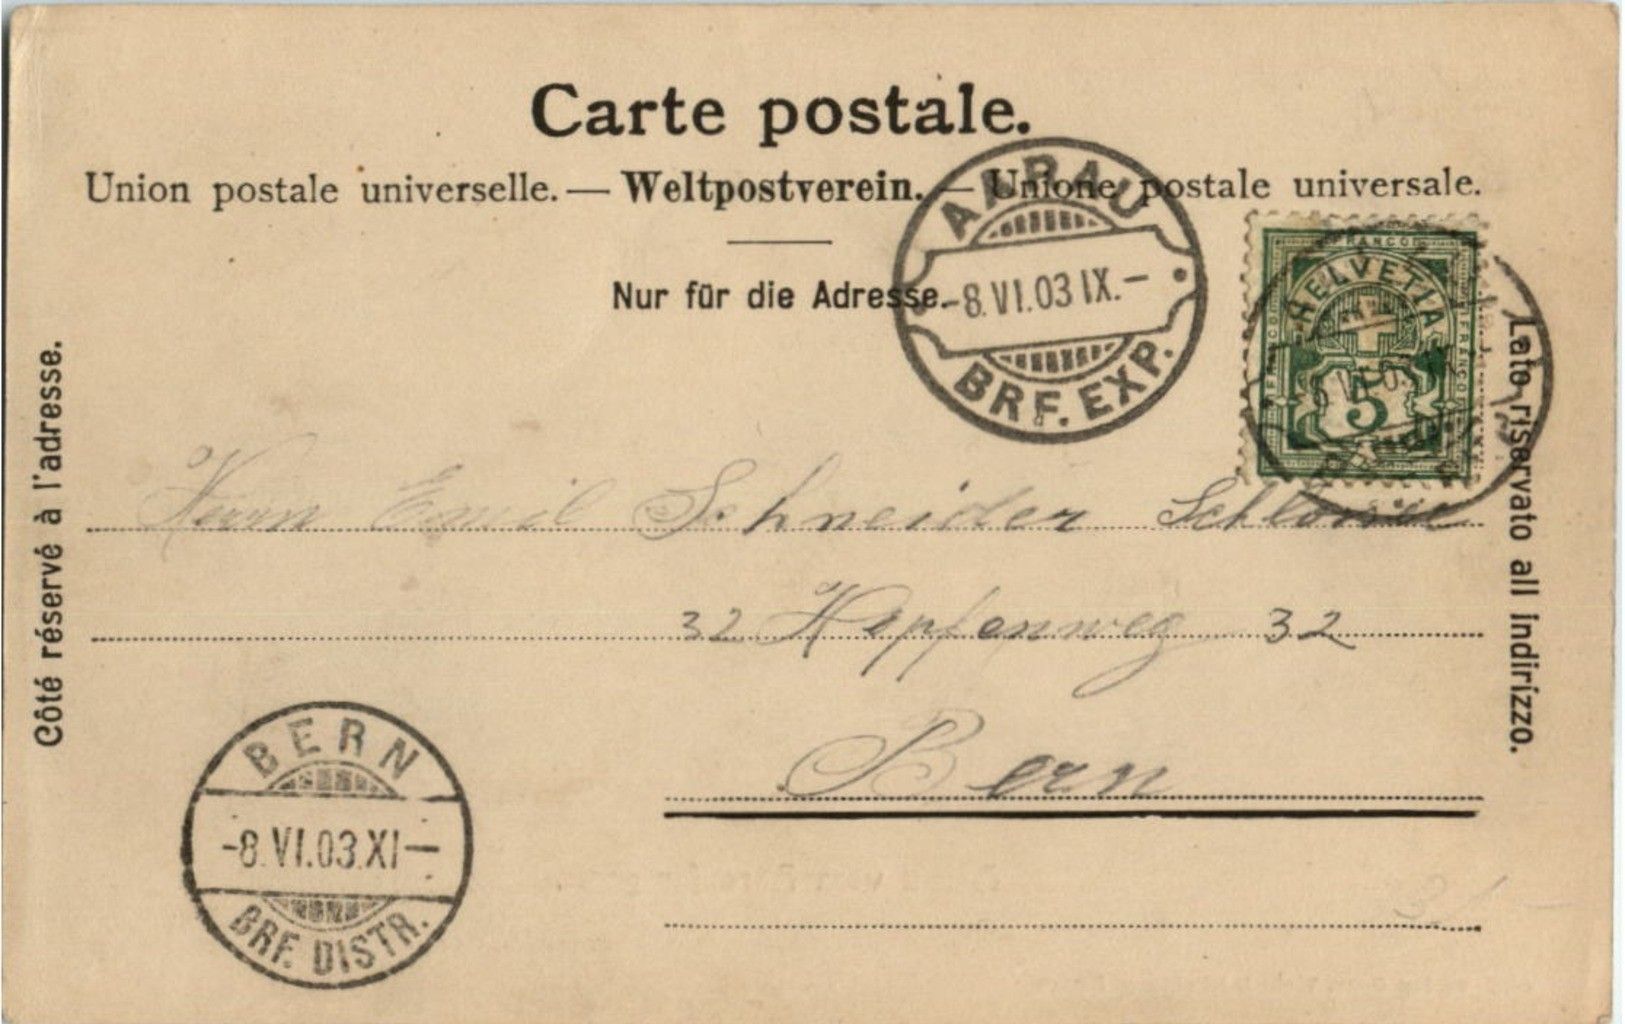 Carte postale.
Union postale universelle. — Weltpostverein. — Unione postale universale.
Nur für die Adresse.
AARAU
-8.VI.03 IX.-
BRF. EXP.
FRANCO
HELVETIA
FRANCO
FRANCO
5
Côté réservé à l'adresse.
Lato riservato all indirizzo.
Herrn Emil Schneider
32 Hopfenweg 32
Bern
BERN
-8.VI.03.XI-
BRF. DISTR.